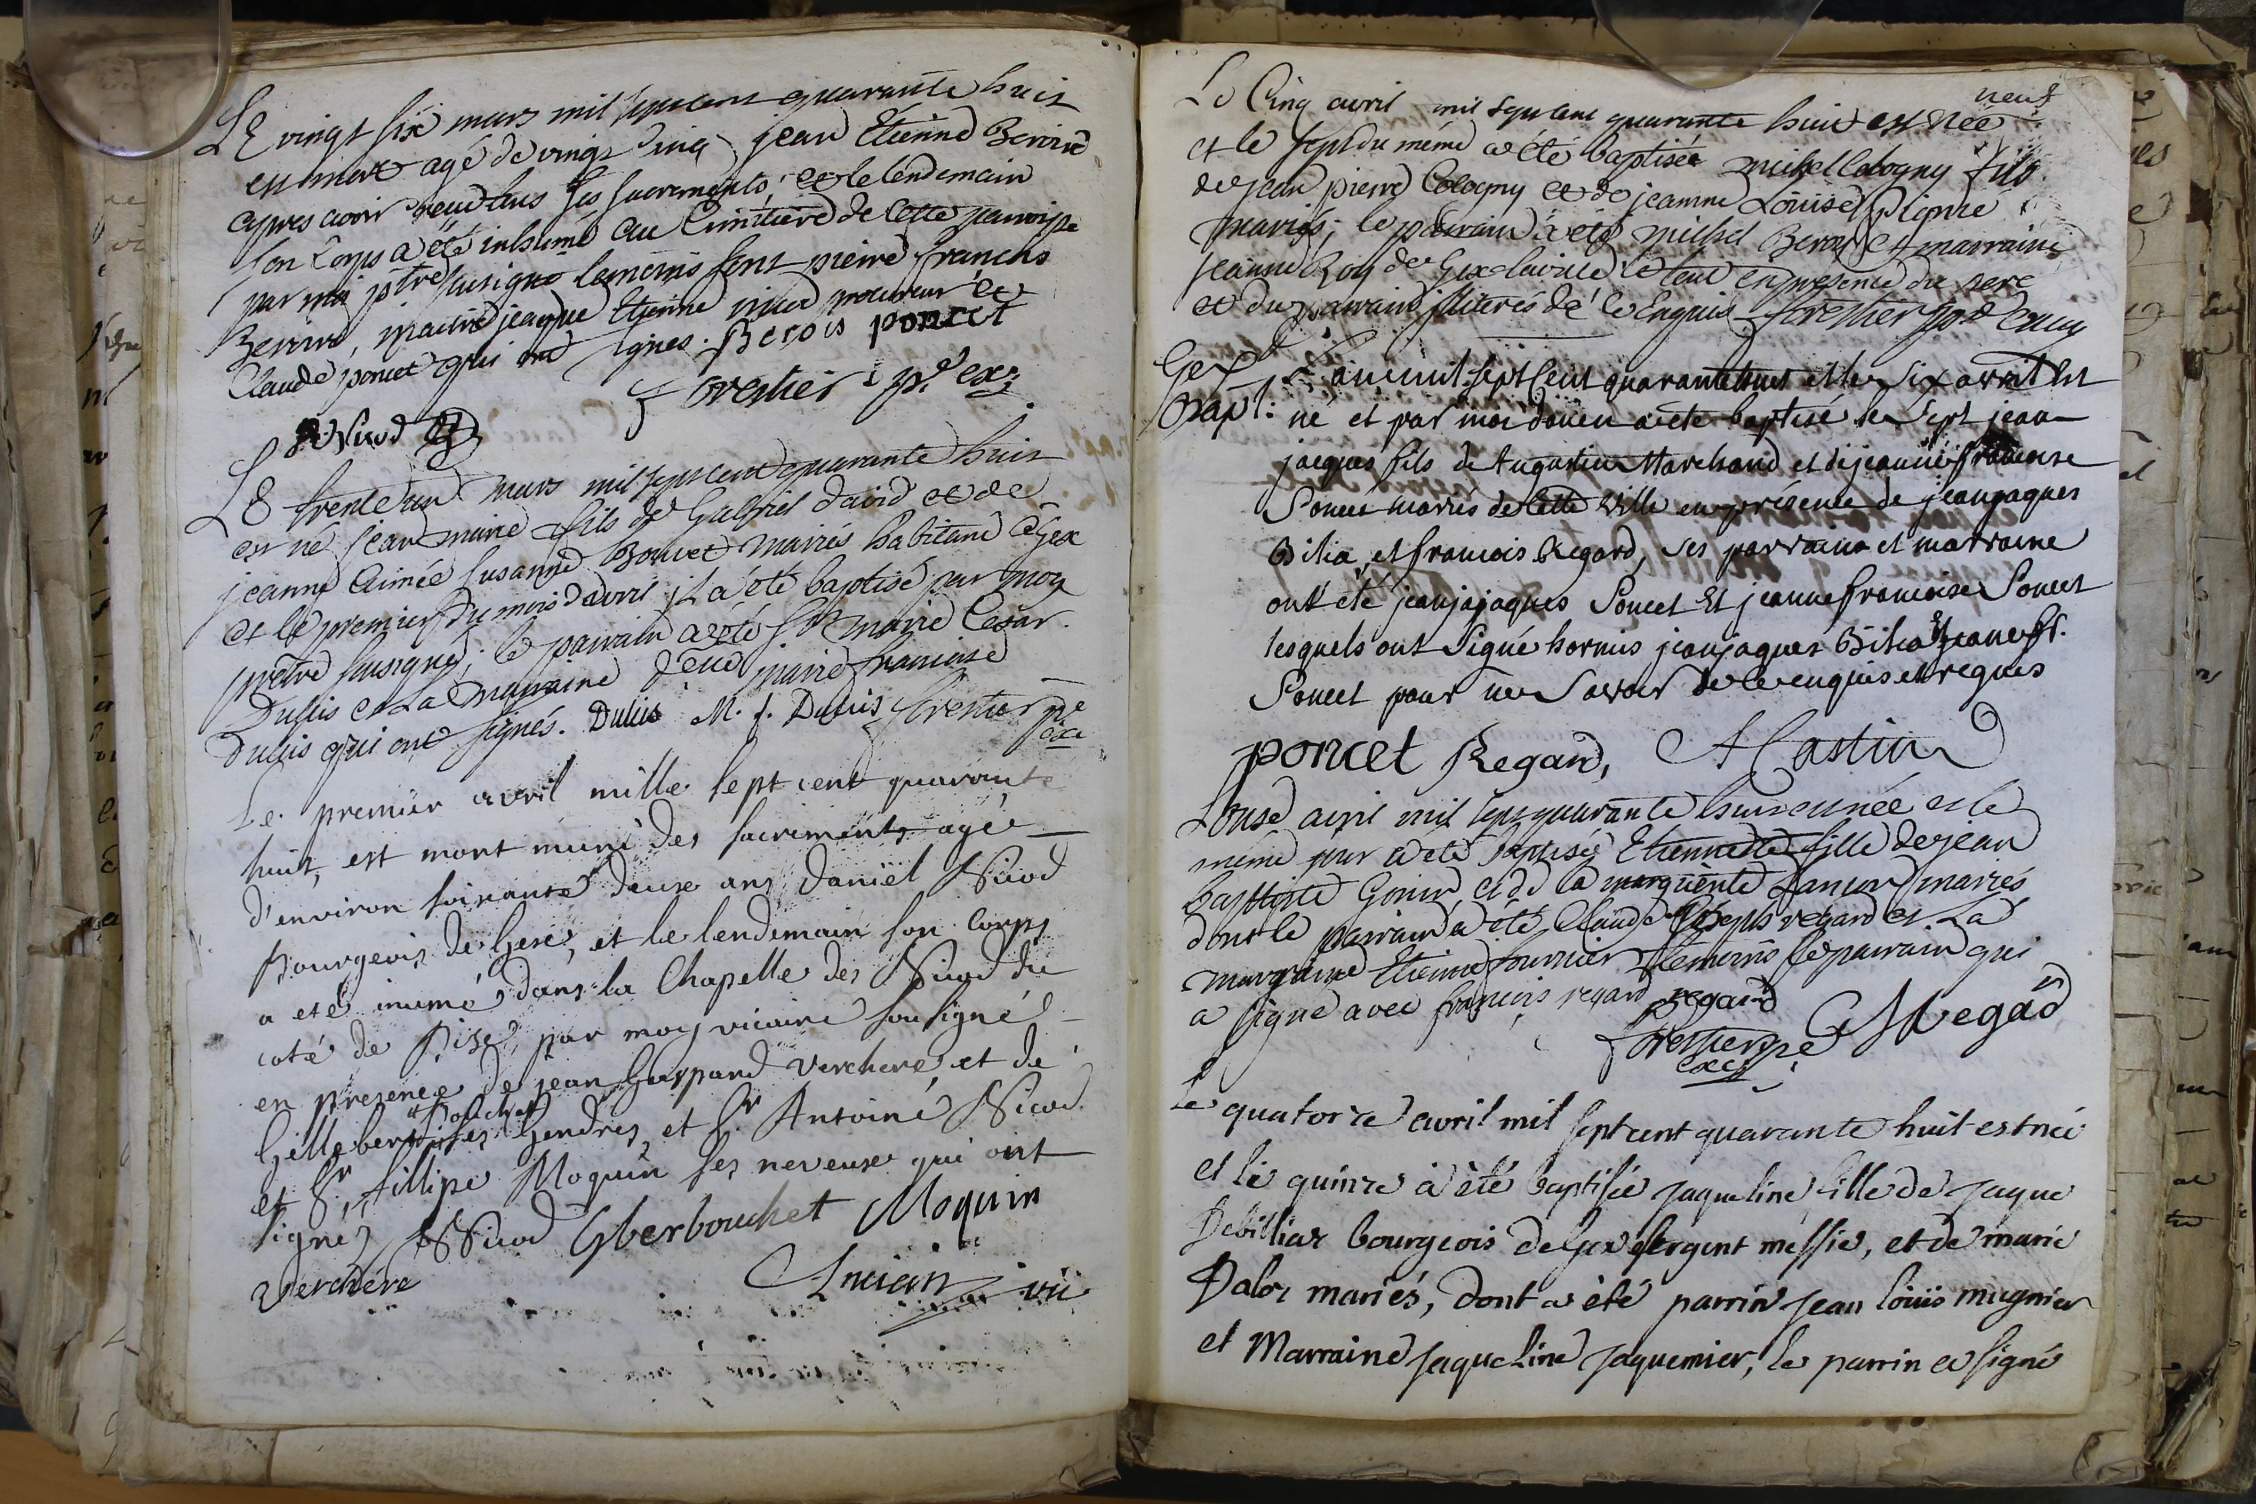 Le vingt six mars mil sept cent quarante huit
est mort agé de vingt cinq jean Etienne Beroird
apres avoir receu tous ses sacrements, et le lendemain
son Corps a été inhumé au Cimetiere de cette paroisse
par moi ptre susigné temoins sont pierre francois
Beroird, maitre jacque Etienne nicod procureur et
Claude poncet qui ont signes. Berois poncet
forestier pe. ex.
Nicod
Le trente un mars mil sept cent quarante huit
est né jean marie fils de Gabriel david et de
jeanne Aimée Susanne Boncet mariés habitant à Gex
et le premier du mois davril il a été baptisé par moy
prêtre susigné; le parrain a été Sr marie Cesar
Duplis et La marraine marie francoise
Duplis qui ont signés. Duluis M. f. Duluis forestier pe
exe
Le premier avril mille sept cent quarante
huit, est mort muni des sacrements agée
d'environ soixante deux ans Daniel Nicod
Bourgeois de Gex, et le lendemain son Corps
a eté inumé dans la Chapelle des Nicod du
coté de Bise, par moy vicaire sousigné
en presence de jean Gaspard Verchere et de
Gillebert Bouchet ses Gendres, et Sr Antoine Nicod
et Sr. fillipe Moquin ses neveux qui ont
signés Nicod Gberbouchet Moquin
verchere
Ancian vic
neuf
Le Cinq avril mil sept cent quarante huit est née
et le sept du même a été baptisée michel Cologny fils
de jean pierre Cologny et de jeanne Louise
mariés; le parrain a été michel Beroz et marraine
jeanne Roy de Gex la ville le tout en presence du pere
et du parrain illiterés de ce Enquis forestier pe Excu
Gex
Bapt.
L'an mil sept Cent quarante huit et le Six avril Est
né et par moi doüen a été baptisé le Sept jean
jacques fils de Augustin Marchand et de jeanne francoise
Poncet mariés de Cette Ville en présence de jeanjaques
Bilia, et francois Regard, ses parrain et marraine
ont été jeanjajaques Poncet Et jeanne francoise Poncet
lesquels ont Signé hormis jeanjaques Bilia Et jeanne fr.
Poncet pour ne Savoir de ce enquis et requis
poncet Regard, A Castin
L'onse avril mil sept quarante huit est née et le
même jour a été baptisée Etiennette fille de jean
baptiste Gonin et de la marguerite Lancon mariés
dont le parrain a été Claude joseph regard et La
marraine Etienne fournier temoins le parrain qui
a signé avec françois regard regard
forestier pe Regad
exc
Le quatorze avril mil sept cent quarante huit est née
et le quinze à été baptisée Jaqueline fille de Jaque
Debilliar bourgeois de Gex sergent messie, et de marie
Daloz mariés, dont a été parrin Jean loüis mugnier
et Marraine Jaqueline Jaquemier, le parrin a signé